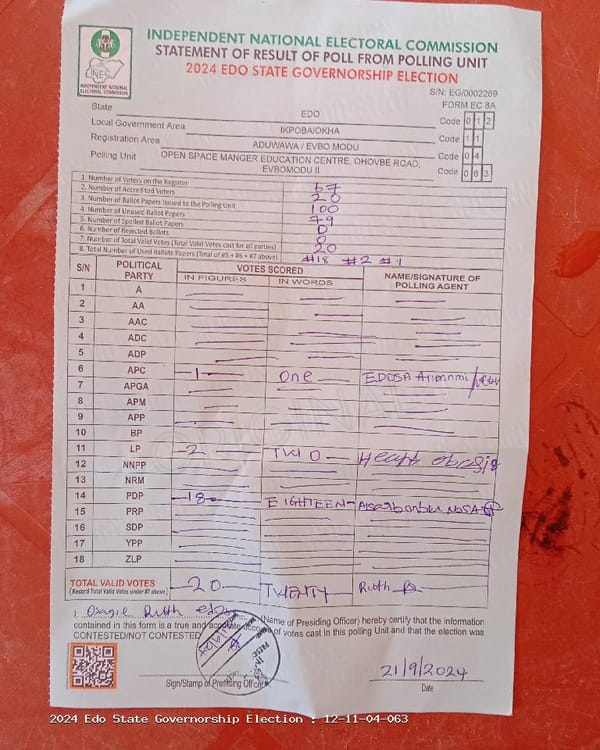 INDEPENDENT NATIONAL ELECTORAL COMMISSION
STATEMENT OF RESULT OF POLL FROM POLLING UNIT
2024 EDO STATE GOVERNORSHIP ELECTION
INEC
INDEPENDENT NATIONAL ELECTORAL COMMISSION
S/N: EG/0002269
FORM EC 8A
State EDO Code 0 1 2
Local Government Area IKPOBA/OKHA Code 1 1
Registration Area ADUWAWA / EVBO MODU Code 0 4
Polling Unit OPEN SPACE MANGER EDUCATION CENTRE, OHOVBE ROAD, EVBOMODU II Code 0 6 3
1. Number of Voters on the Register 67
2. Number of Accredited Voters 20
3. Number of Ballot Papers Issued to the Polling Unit 100
4. Number of Unused Ballot Papers 79
5. Number of Spoiled Ballot Papers 0
6. Number of Rejected Ballots
7. Number of Total Valid Votes (Total Valid Votes cast for all parties) 20
8. Total Number of Used Ballots Papers (Total of #5 + #6 + #7 above) #18 #2 #1
S/N POLITICAL PARTY VOTES SCORED NAME/SIGNATURE OF POLLING AGENT
IN FIGURES IN WORDS
1 A
2 AA
3 AAC
4 ADC
5 ADP
6 APC 1 One EDOSA
7 APGA
8 APM
9 APP
10 BP
11 LP 2 TWO
12 NNPP
13 NRM
14 PDP 18 EIGHTEEN
15 PRP
16 SDP
17 YPP
18 ZLP
TOTAL VALID VOTES 20 TWENTY Ruth
(Record Total Valid Votes under #7 above)
I, Osagie Ruth (Name of Presiding Officer) hereby certify that the information
contained in this form is a true and accurate account of votes cast in this polling Unit and that the election was
CONTESTED/NOT CONTESTED
Sign/Stamp of Presiding Officer
21/9/2024
Date
2024 Edo State Governorship Election : 12-11-04-063